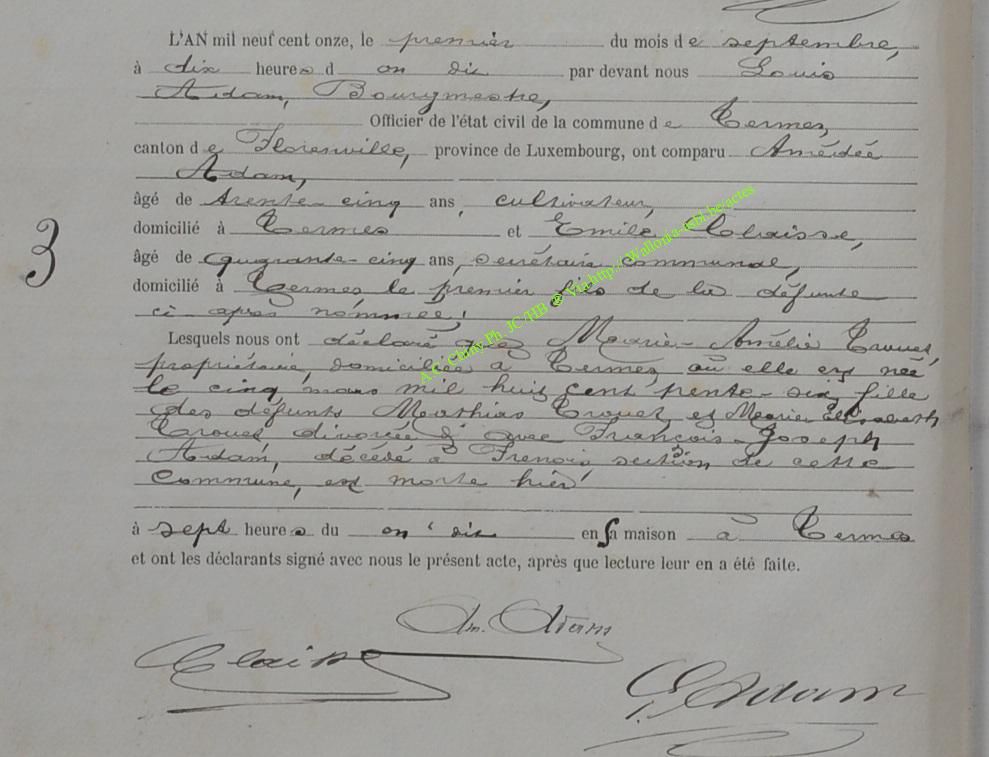 L'AN mil neuf cent onze, le premier du mois d e septembre,
à dix heures d on dix par devant nous Louis
Adam, Bourgmestre,
Officier de l'état civil de la commune d e Termes,
canton d e Florenville, province de Luxembourg, ont comparu Amédée
Adam,
âgé de trente-cinq ans, cultivateur,
domicilié à Termes et Emile Claisse,
3
âgé de quarante-cinq ans, secrétaire communal,
domicilié à Termes le premier fils de la défunte
ci après nommée,
Lesquels nous ont déclaré que Marie-Amélie
propriétaire, domiciliée à Termes où elle est née
le cinq mars mil huit cent trente-six fille
des défunts Mathias et Marie Elisabeth
divorcée d'avec François-Joseph
Adam, décédé à Frenois section de cette
Commune, est morte hier
à sept heures du en sa maison à Termes
et ont les déclarants signé avec nous le présent acte, après que lecture leur en a été faite.
Am. Adam
Claisse
L. Adam
A.C. Chiny Ph JC/HB @ Via http://Wallonia-asbl.be/actes